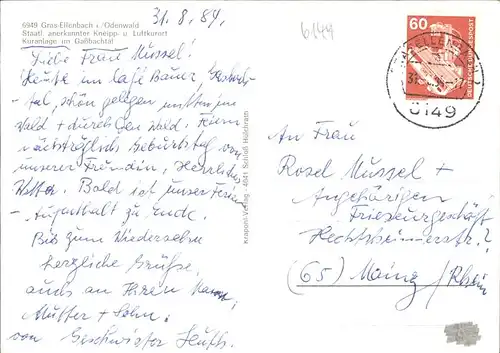 6949 Gras-Ellenbach i./Odenwald
Staatl. anerkannter Kneipp- u. Luftkurort
Kuranlage im Gaßbachtal
31.8.84.
6149
Liebe Frau Mussel!
Heute im Café Bauer
tal, schön gelegen mitten im
Wald + durch den Wald. Feiern
nachträglich Geburtstag von
unserer Freundin, Herrliches
Wetter. Bald ist unser Ferien
Aufenthalt zu Ende.
Bis zum Wiedersehn
herzliche Grüße,
auch an Ihren Mann,
Mutter + Sohn.
von Geschwister
Krapohl-Verlag · 4041 Schloß Hülchrath
60
DEUTSCHE BUNDESPOST
6149
An Frau
Rosel Mussel +
Angehörigen
Friseurgeschäft
(65) Mainz/Rhein